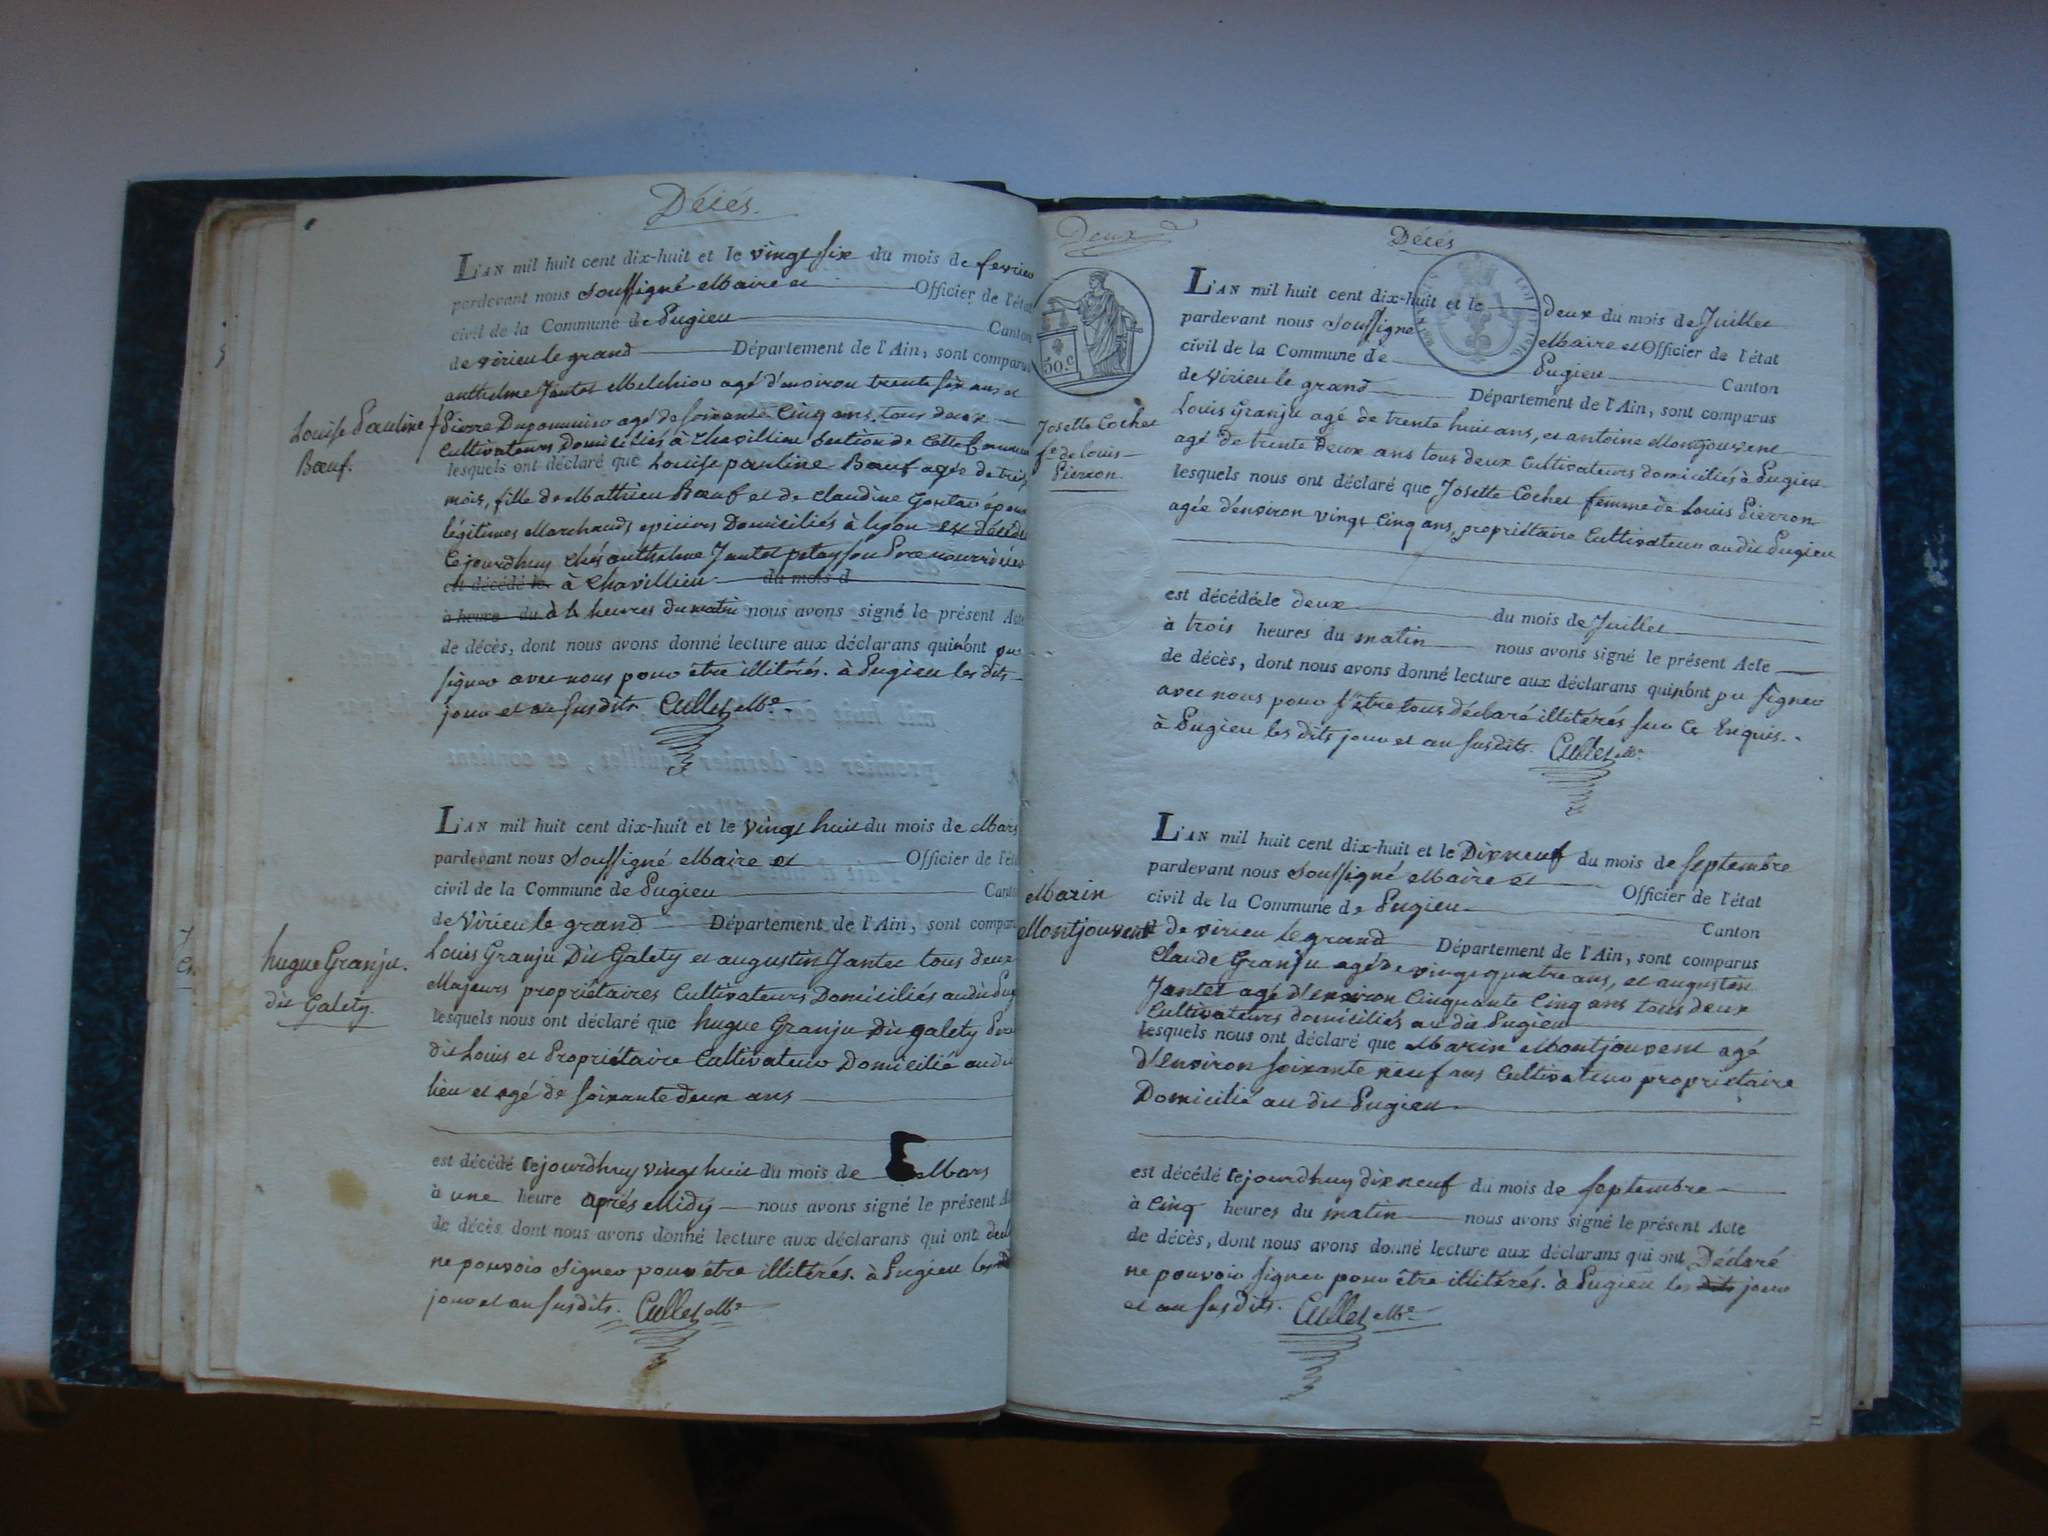 Décés.
L'AN mil huit cent dix-huit et le vingt six du mois de fevrier
pardevant nous soussigné Maire et Officier de l'état
civil de la Commune de Pugieu Canton
de virieu le grand Département de l'Ain, sont comparus
anthelme Jantet Melchior agé d'environ trente six ans et
Pierre agé de soixante Cinq ans tous deux
Cultivateurs Domiciliés à Chavillieu Section de Cette Commune
lesquels ont déclaré que Louise pauline Bœuf agée de trois
mois, fille de Mathieu Bœuf et de Claudine époux
légitimes Marchands epiciers Domiciliés à lyon est décédée
Cejourdhuy chés anthelme Jantet son Pere nourricier
est décédé le à Chavillieu du mois d
à heure du à heures du matin nous avons signé le présent Acte
de décès, dont nous avons donné lecture aux déclarans qui n'ont pu
signer avec nous pour être illitérés. à Pugieu les dits
jour et an susdits. Cullet Me.
Louise Pauline
Bœuf.
L'AN mil huit cent dix-huit et le vingt huit du mois de Mars
pardevant nous soussigné Maire et Officier de l'état
civil de la Commune de Pugieu Canton
de Virieu le grand Département de l'Ain, sont comparus
Louis Granju Dit Galety et augustin Jantet tous deux
Majeurs propriétaires Cultivateurs Domiciliés audit Pug
lesquels nous ont déclaré que hugue Granju Dit galety Pere
dit Louis et Propriétaire Cultivateur Domicilié audit
lieu et agé de soixante deux ans
est décédé cejourdhuy vingt huit du mois de Mars
à une heure après Midy nous avons signé le présent Acte
de décès, dont nous avons donné lecture aux déclarans qui ont
ne pouvoir signer pour être illitérés. à Pugieu les
jour et an susdits. Cullet Me
hugue Granju.
dit Galety.
Deux
Décés
50.c
L'AN mil huit cent dix-huit et le deux du mois de Juillet
pardevant nous soussigné Maire et Officier de l'état
civil de la Commune de Pugieu Canton
de Virieu le grand Département de l'Ain, sont comparus
Louis Granju agé de trente huit ans, et antoine Montjouvent
agé de trente Deux ans tous deux Cultivateurs domiciliés à Pugieu
lesquels nous ont déclaré que Josette Cochet femme de Louis Pierron
agée d'environ vingt Cinq ans, propriétaire Cultivateur au dit Pugieu
est décédée le deux du mois de Juillet
à trois heures du matin nous avons signé le présent Acte
de décès, dont nous avons donné lecture aux déclarans qui n'ont pu signer
avec nous pour s'être tous déclaré illitérés sur ce Enquis.
à Pugieu les dits jour et an susdits. Cullet Me.
Josette Cochet
fe de Louis
Pierron.
L'AN mil huit cent dix-huit et le Dixneuf du mois de septembre
pardevant nous soussigné Maire et Officier de l'état
civil de la Commune de Pugieu Canton
de virieu le grand Département de l'Ain, sont comparus
Claude Granju agé de vingt quatre ans, et augustin
Jantet agé d'environ Cinquante Cinq ans tous deux
Cultivateurs domiciliés au dit Pugieu
lesquels nous ont déclaré que Marin Montjouvent agé
d'Environ soixante neuf ans Cultivateur propriétaire
Domicilié au dit Pugieu
est décédé cejourdhuy dixneuf du mois de septembre
à Cinq heures du matin nous avons signé le présent Acte
de décès, dont nous avons donné lecture aux déclarans qui ont Déclaré
ne pouvoir signer pour être illitérés. à Pugieu les dits jour
et an susdits. Cullet Me
Marin
Montjouvent